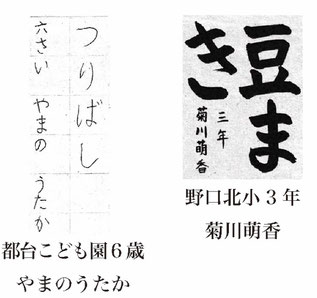 つりばし
六さい やまの うたか
都台こども園6歳
やまのうたか
豆ま
き
三年
菊川萌香
野口北小3年
菊川萌香